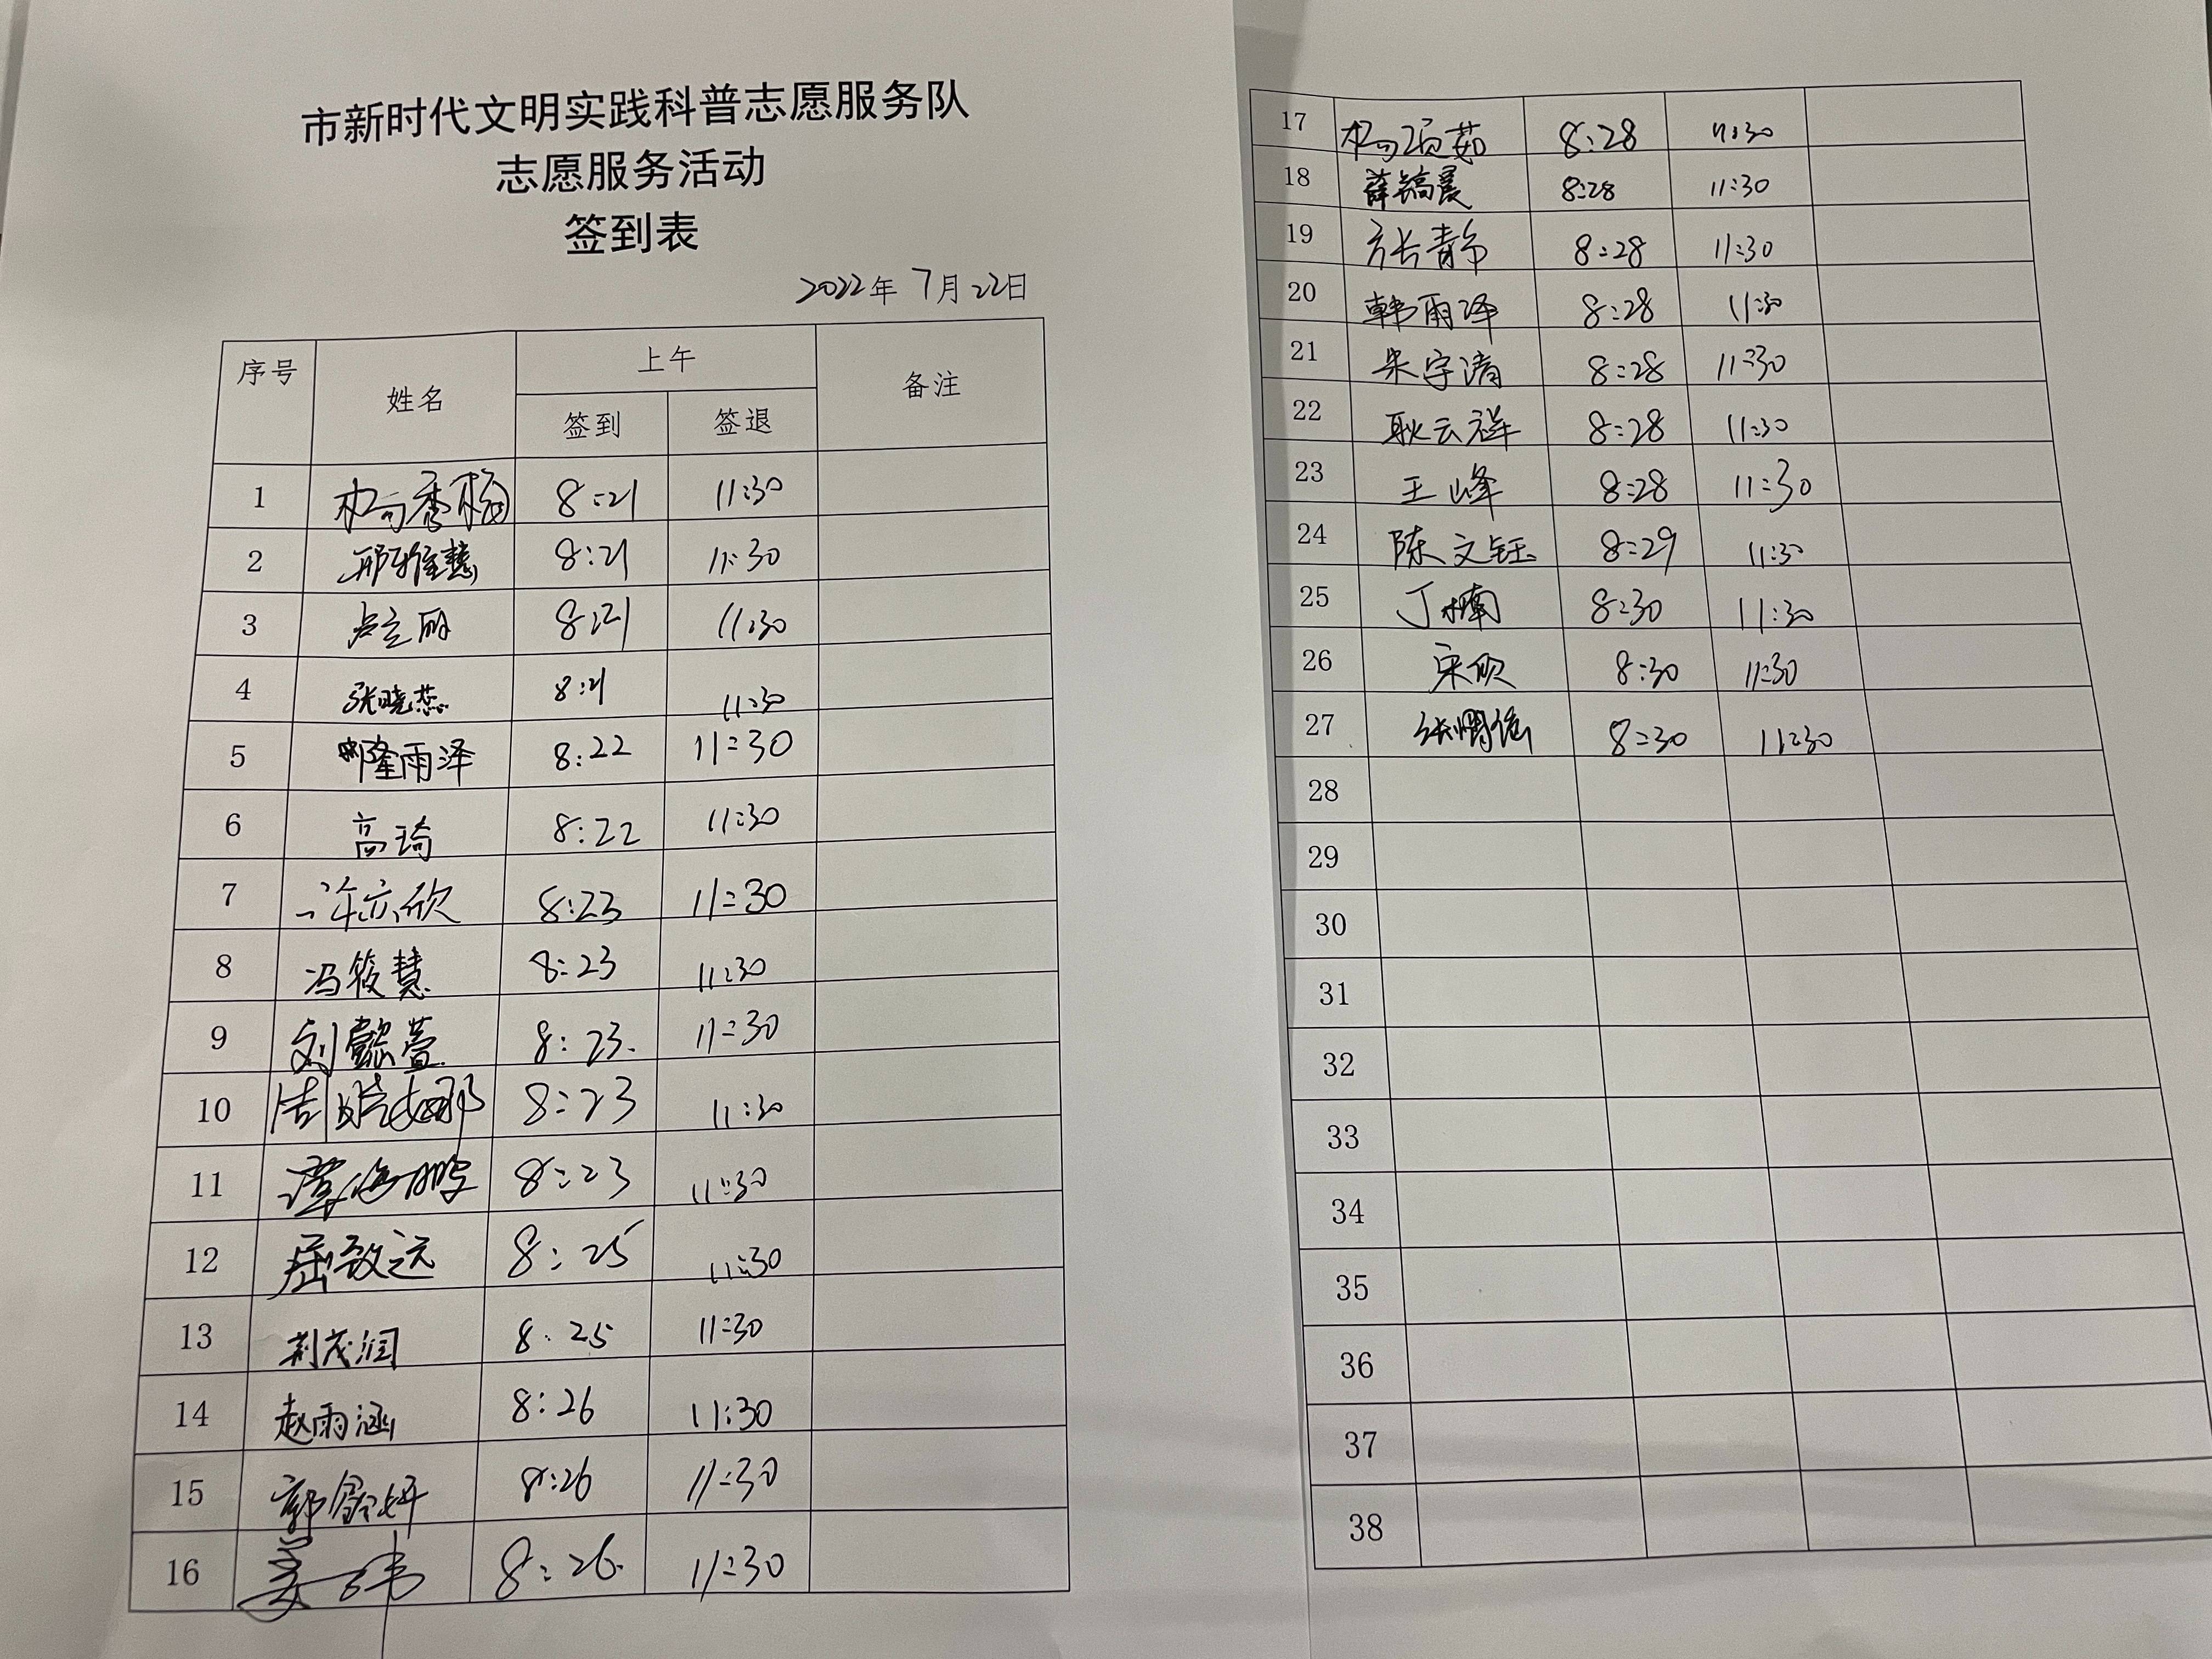 市新时代文明实践科普志愿服务队
志愿服务活动
签到表
2022年 7月 22日
序号 姓名 上午 备注
签到 签退
1 杨秀梅 8:21 11:30
2 邢雅慧 8:21 11:30
3 卢立丽 8:21 11:30
4 张晓燕 8:21 11:30
5 隆雨泽 8:22 11:30
6 高琦 8:22 11:30
7 许亦欣 8:23 11:30
8 冯筱慧 8:23 11:30
9 刘懿萱 8:23. 11:30
10 周晓娜 8:23 11:30
11 海鹏 8:23 11:30
12 屈致远 8:25 11:30
13 荆茂润 8:25 11:30
14 赵雨涵 8:26 11:30
15 郭妍 8:26 11:30
16 姜玮 8:26. 11:30
17 杨茹 8:28 11:30
18 薛镐晨 8:28 11:30
19 方长青 8:28 11:30
20 韩雨泽 8:28 11:30
21 朱宇清 8:28 11:30
22 耿云祥 8:28 11:30
23 王峰 8:28 11:30
24 陈文钰 8:29 11:30
25 丁楠 8:30 11:30
26 宋欣 8:30 11:30
27 张 8:30 11:30
28
29
30
31
32
33
34
35
36
37
38